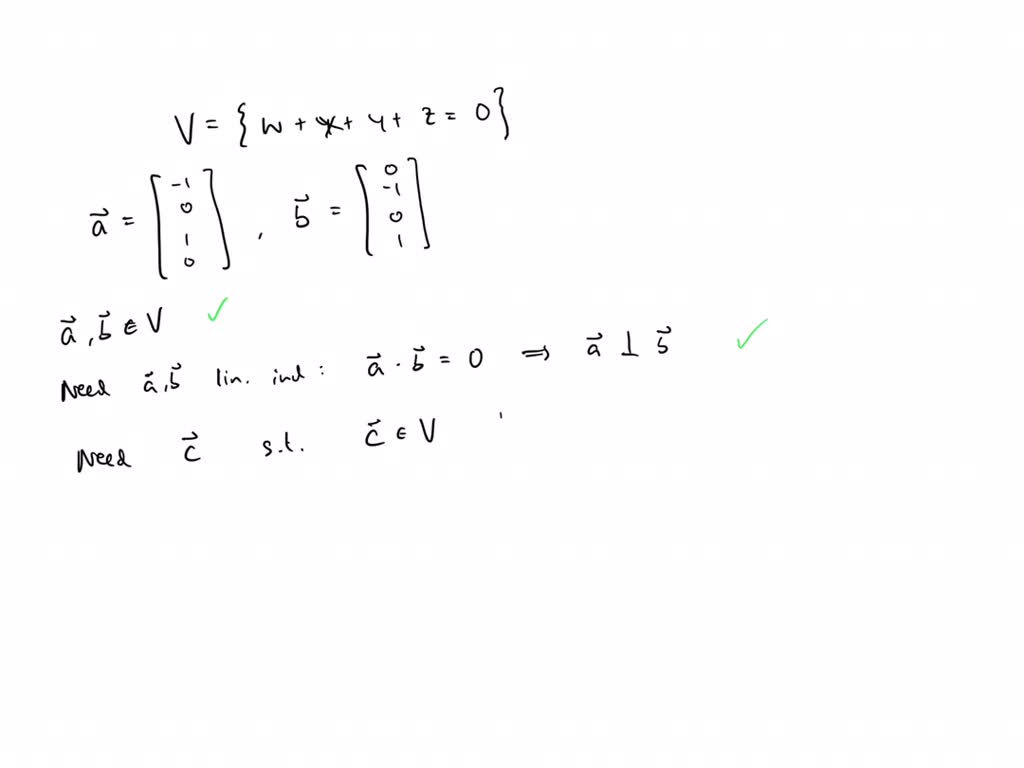 V = { w + x + y + z = 0 }
a⃗ = [ -1 0 1 0 ] , b⃗ = [ 0 -1 0 1 ]
a⃗ , b⃗ ∈ V ✓
Need a⃗, b⃗ lin. ind : a⃗ · b⃗ = 0 ⇒ a⃗ ⊥ b⃗ ✓
Need c⃗ s.t. c⃗ ∈ V